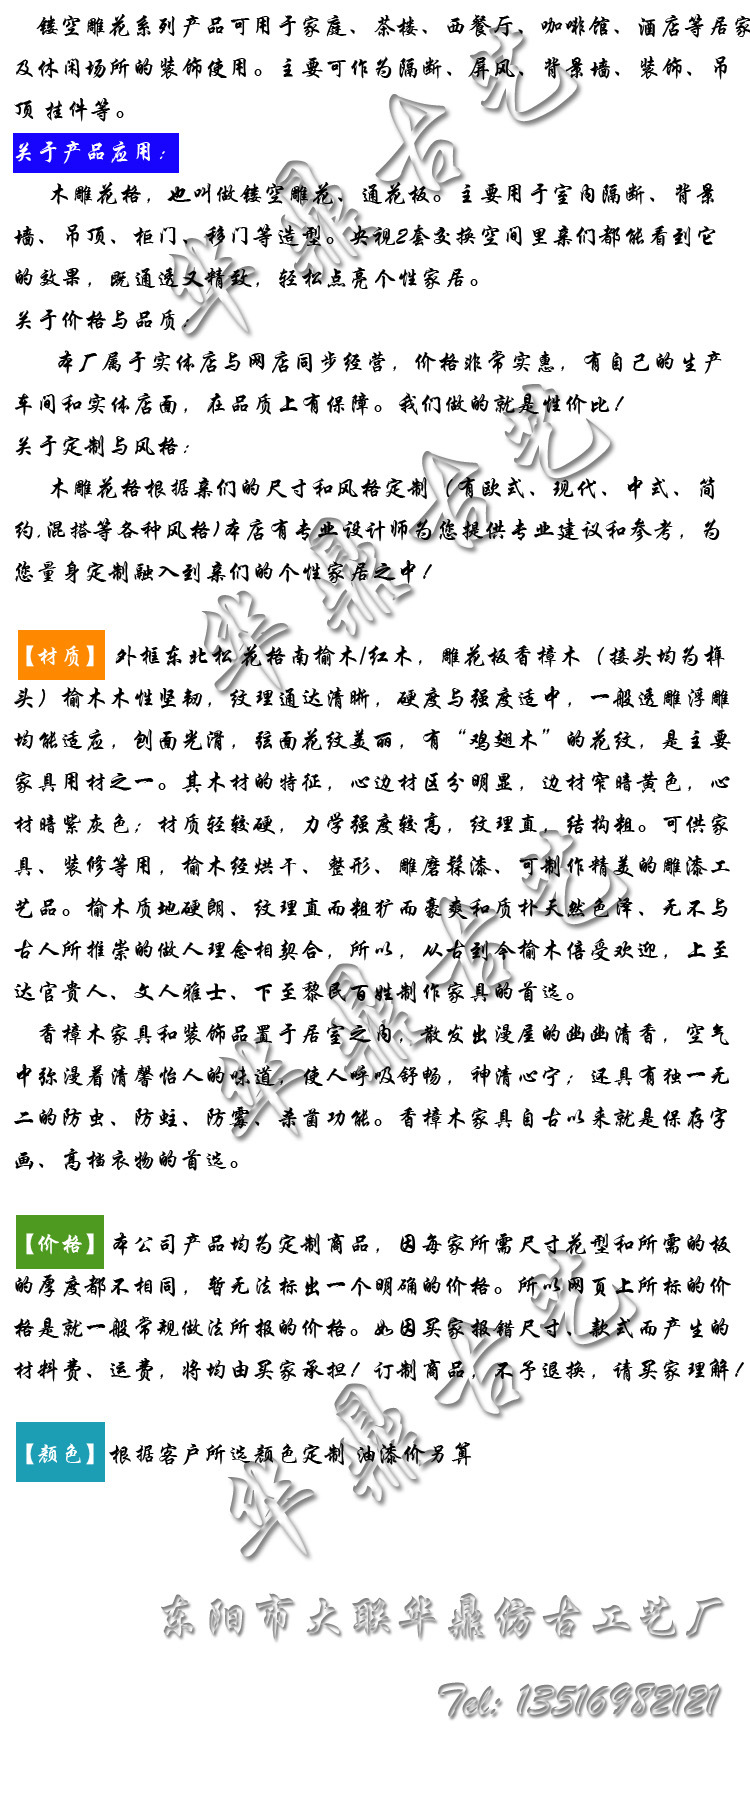 镂空雕花系列产品可用于家庭、茶楼、西餐厅、咖啡馆、酒店等居家
及休闲场所的装饰使用。主要可作为隔断、屏风、背景墙、装饰、吊
顶 挂件等。
关于产品应用：
木雕花格，也叫做镂空雕花、通花板。主要用于室内隔断、背景
墙、吊顶、柜门、移门等造型。央视2套交换空间里亲们都能看到它
的效果，既通透又精致，轻松点亮个性家居。
关于价格与品质：
本厂属于实体店与网店同步经营，价格非常实惠，有自己的生产
车间和实体店面，在品质上有保障。我们做的就是性价比！
关于定制与风格：
木雕花格根据亲们的尺寸和风格定制（有欧式、现代、中式、简
约,混搭等各种风格)本店有专业设计师为您提供专业建议和参考，为
您量身定制融入到亲们的个性家居之中！
【材质】 外框东北松花格南榆木/红木，雕花板香樟木（接头均为榫
头）榆木木性坚韧，纹理通达清晰，硬度与强度适中，一般透雕浮雕
均能适应，刨面光滑，弦面花纹美丽，有“鸡翅木”的花纹，是主要
家具用材之一。其木材的特征，心边材区分明显，边材窄暗黄色，心
材暗紫灰色；材质轻较硬，力学强度较高，纹理直，结构粗。可供家
具、装修等用，榆木经烘干、整形、雕磨髹漆、可制作精美的雕漆工
艺品。榆木质地硬朗、纹理直而粗犷而豪爽和质朴天然色泽、无不与
古人所推崇的做人理念相契合，所以，从古到今榆木倍受欢迎，上至
达官贵人、文人雅士、下至黎民百姓制作家具的首选。
香樟木家具和装饰品置于居室之内，散发出漫屋的幽幽清香，空气
中弥漫着清馨怡人的味道，使人呼吸舒畅，神清心宁；还具有独一无
二的防虫、防蛀、防霉、杀菌功能。香樟木家具自古以来就是保存字
画、高档衣物的首选。
【价格】 本公司产品均为定制商品，因每家所需尺寸花型和所需的板
的厚度都不相同，暂无法标出一个明确的价格。所以网页上所标的价
格是就一般常规做法所报的价格。如因买家报错尺寸、款式而产生的
材料费、运费，将均由买家承担！订制商品，不予退换，请买家理解！
【颜色】 根据客户所选颜色定制 油漆价另算
华鼎古艺
华鼎古艺
华鼎古艺
华鼎古艺
东阳市大联华鼎仿古工艺厂
Tel: 13516982121